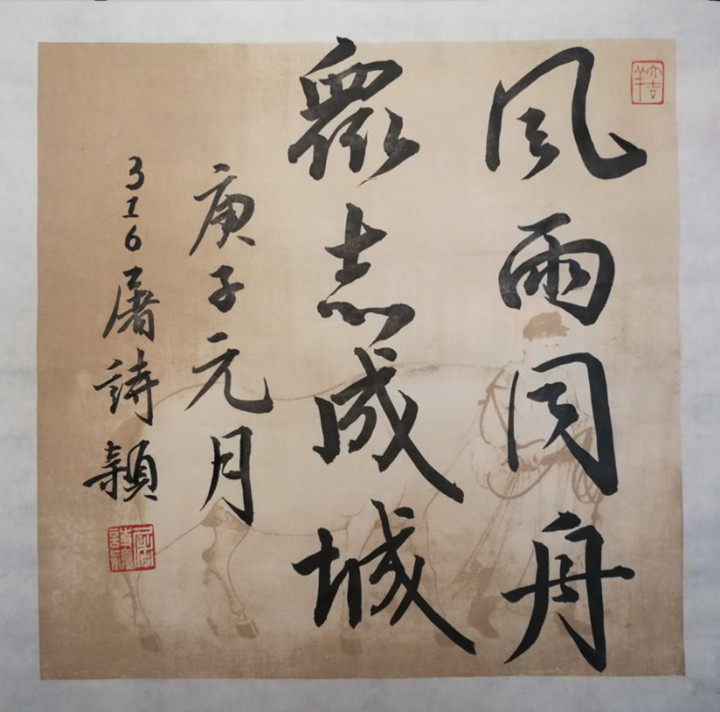 風雨同舟
眾志成城
庚子元月
316屠詩穎